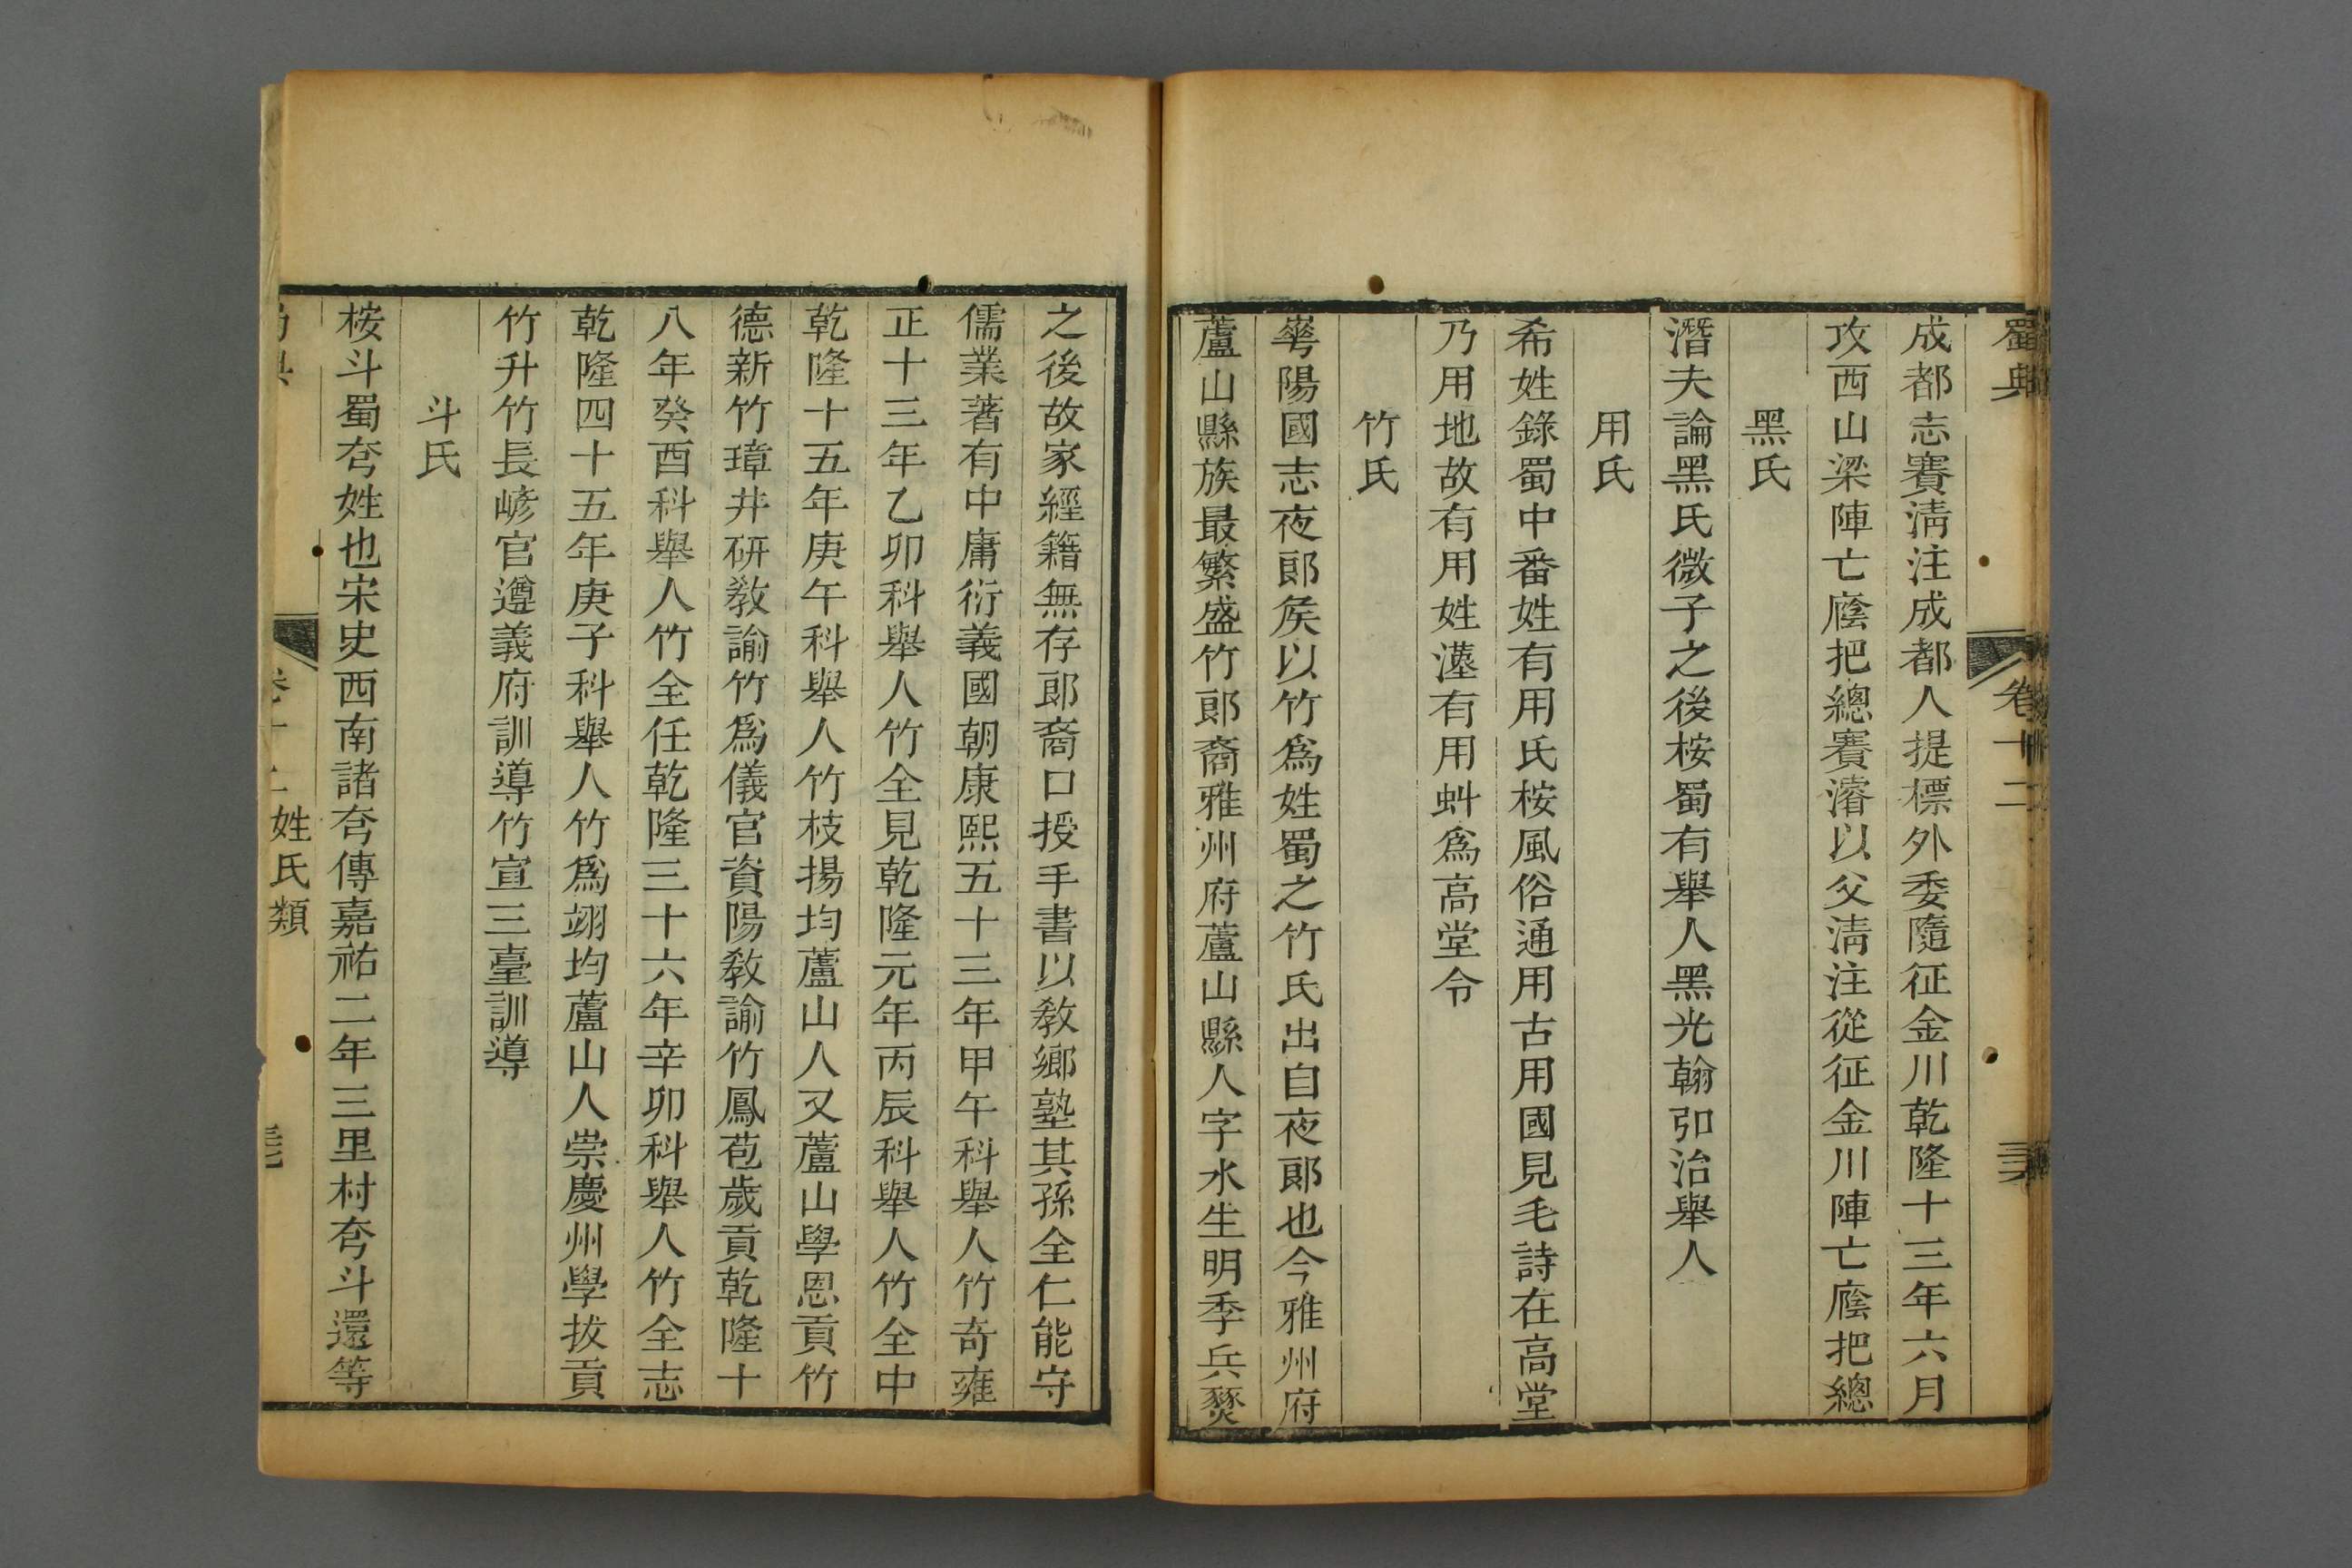 蜀典
卷十二
成都志賽淸注成都人提標外委隨征金川乾隆十三年六月
攻西山梁陣亡廕把總賽濬以父淸注從征金川陣亡廕把總
黑氏
潛夫論黑氏微子之後桉蜀有舉人黑光翰卭治舉人
用氏
希姓錄蜀中番姓有用氏桉風俗通用古用國見毛詩在高堂
乃用地故有用姓漢有用虯爲高堂令
竹氏
華陽國志夜郎矦以竹爲姓蜀之竹氏出自夜郎也今雅州府
蘆山縣族最繁盛竹郎裔雅州府蘆山縣人字水生明季兵燹
之後故家經籍無存郎裔口授手書以敎鄉塾其孫全仁能守
儒業著有中庸衍義國朝康熙五十三年甲午科舉人竹奇雍
正十三年乙卯科舉人竹全見乾隆元年丙辰科舉人竹全中
乾隆十五年庚午科舉人竹枝揚均蘆山人又蘆山學恩貢竹
德新竹璋井硏敎諭竹爲儀官資陽敎諭竹鳳苞歲貢乾隆十
八年癸酉科舉人竹全任乾隆三十六年辛卯科舉人竹全志
乾隆四十五年庚子科舉人竹爲翊均蘆山人崇慶州學拔貢
竹升竹長㟽官遵義府訓導竹宣三臺訓導
斗氏
桉斗蜀夸姓也宋史西南諸夸傳嘉祐二年三里村夸斗還等
姓氏類